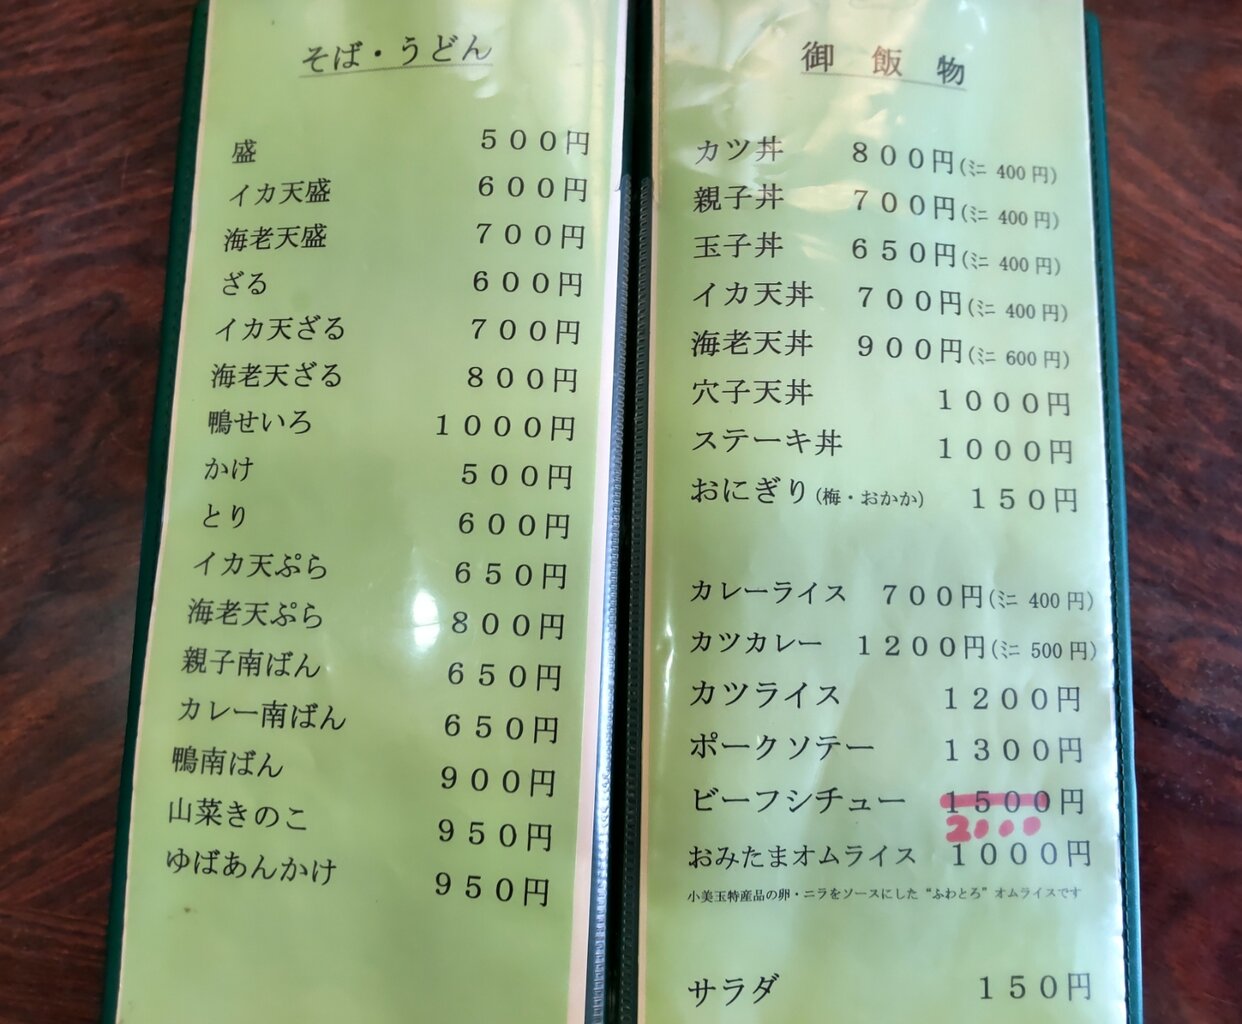 そば・うどん
盛 ５００円
イカ天盛 ６００円
海老天盛 ７００円
ざる ６００円
イカ天ざる ７００円
海老天ざる ８００円
鴨せいろ １０００円
かけ ５００円
とり ６００円
イカ天ぷら ６５０円
海老天ぷら ８００円
親子南ばん ６５０円
カレー南ばん ６５０円
鴨南ばん ９００円
山菜きのこ ９５０円
ゆばあんかけ ９５０円
御飯物
カツ丼 ８００円(ミニ 400円)
親子丼 ７００円(ミニ 400円)
玉子丼 ６５０円(ミニ 400円)
イカ天丼 ７００円(ミニ 400円)
海老天丼 ９００円(ミニ 600円)
穴子天丼 １０００円
ステーキ丼 １０００円
おにぎり(梅・おかか) １５０円
カレーライス ７００円(ミニ 400円)
カツカレー １２００円(ミニ 500円)
カツライス １２００円
ポークソテー １３００円
ビーフシチュー １５００円
2000
おみたまオムライス １０００円
小美玉特産品の卵・ニラをソースにした“ふわとろ”オムライスです
サラダ １５０円